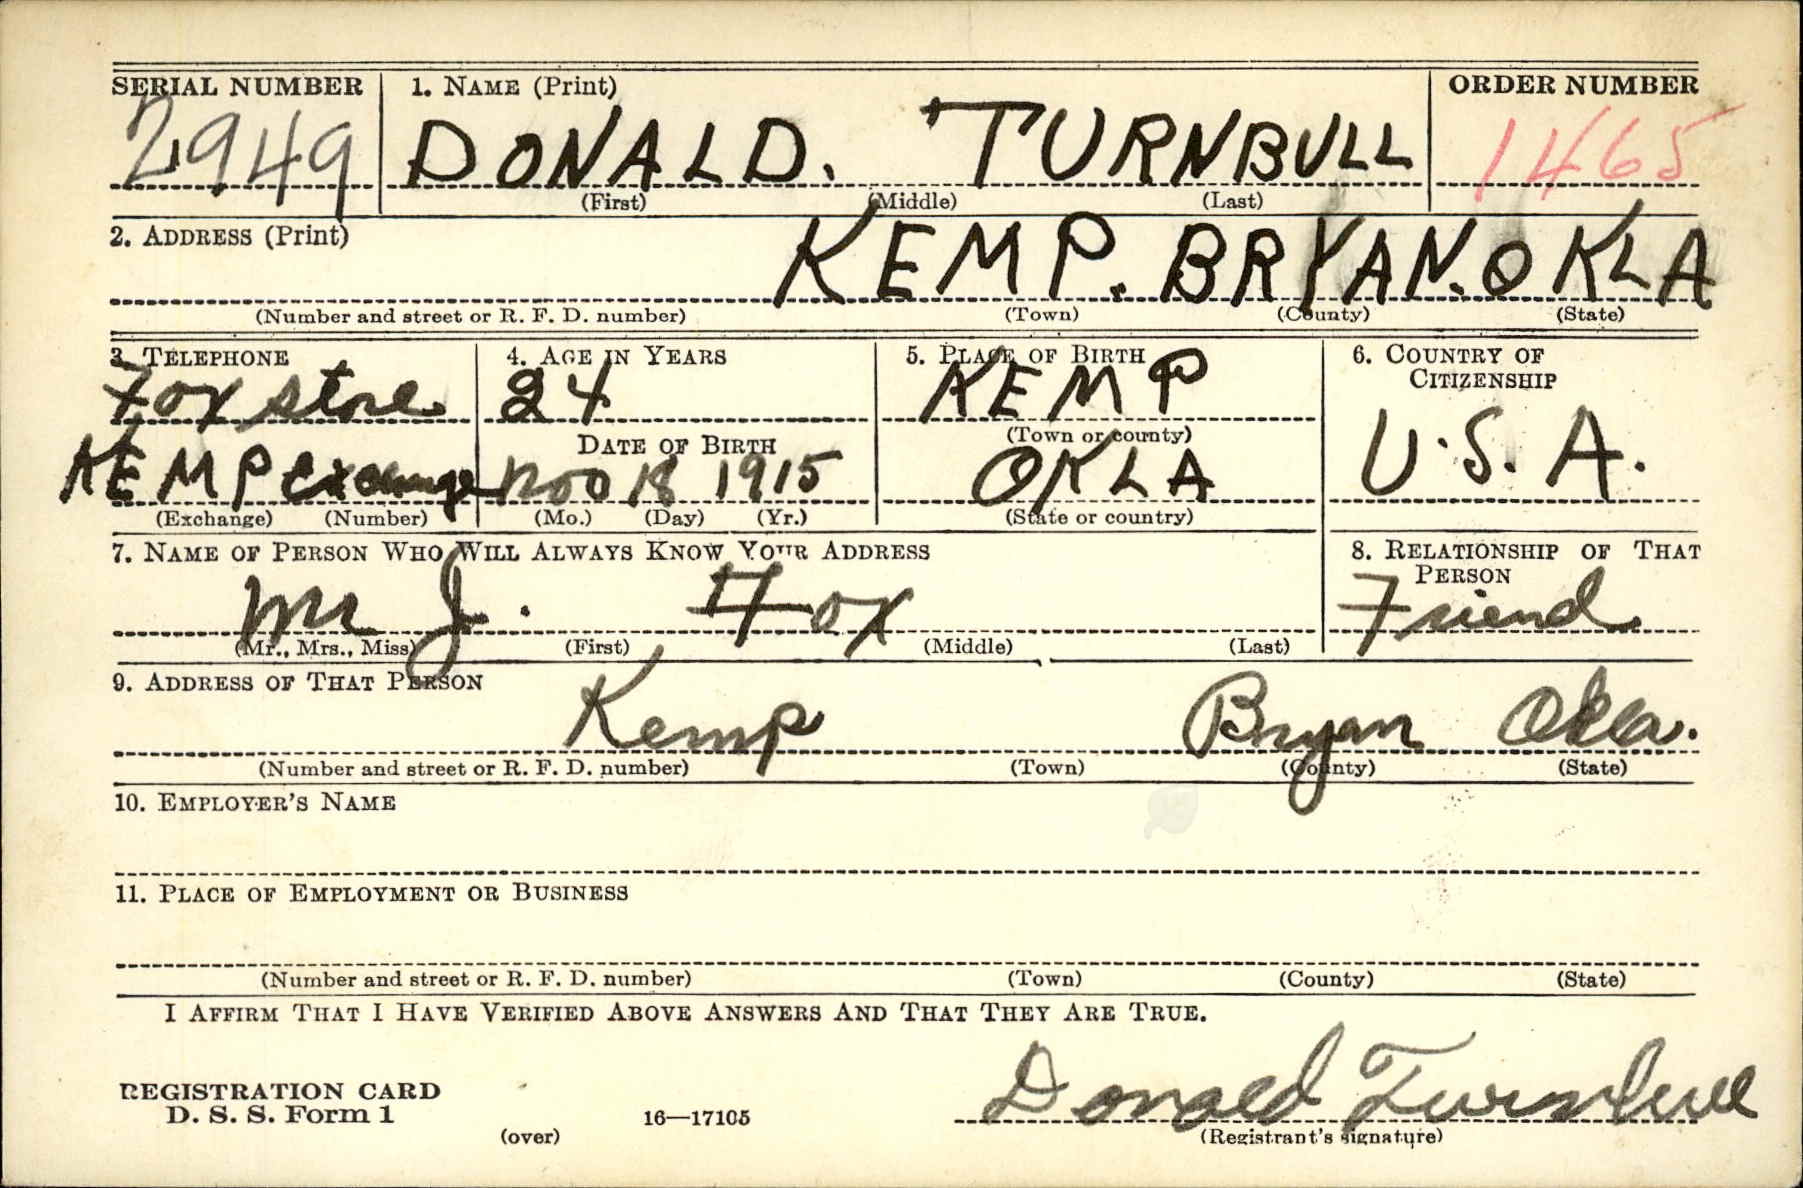 SERIAL NUMBER 1. NAME (Print) ORDER NUMBER
2949 DONALD. TURNBULL 1465
(First) (Middle) (Last)
2. ADDRESS (Print)
KEMP. BRYAN. OKLA
(Number and street or R. F. D. number) (Town) (County) (State)
3. TELEPHONE 4. AGE IN YEARS 5. PLACE OF BIRTH 6. COUNTRY OF CITIZENSHIP
Fox store 24 KEMP
DATE OF BIRTH (Town or county) U.S.A.
KEMP Exchange Nov 18 1915 OKLA
(Exchange) (Number) (Mo.) (Day) (Yr.) (State or country)
7. NAME OF PERSON WHO WILL ALWAYS KNOW YOUR ADDRESS 8. RELATIONSHIP OF THAT PERSON
Mr J. Fox Friend
(Mr., Mrs., Miss) (First) (Middle) (Last)
9. ADDRESS OF THAT PERSON
Kemp Bryan Okla.
(Number and street or R. F. D. number) (Town) (County) (State)
10. EMPLOYER'S NAME
11. PLACE OF EMPLOYMENT OR BUSINESS
(Number and street or R. F. D. number) (Town) (County) (State)
I AFFIRM THAT I HAVE VERIFIED ABOVE ANSWERS AND THAT THEY ARE TRUE.
REGISTRATION CARD
D. S. S. Form 1 16—17105 Donald Turnbull
(over) (Registrant's signature)